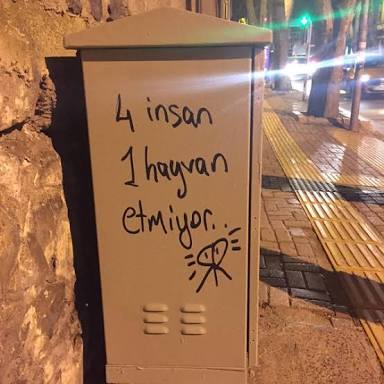 4 insan
1 hayvan
etmiyor..